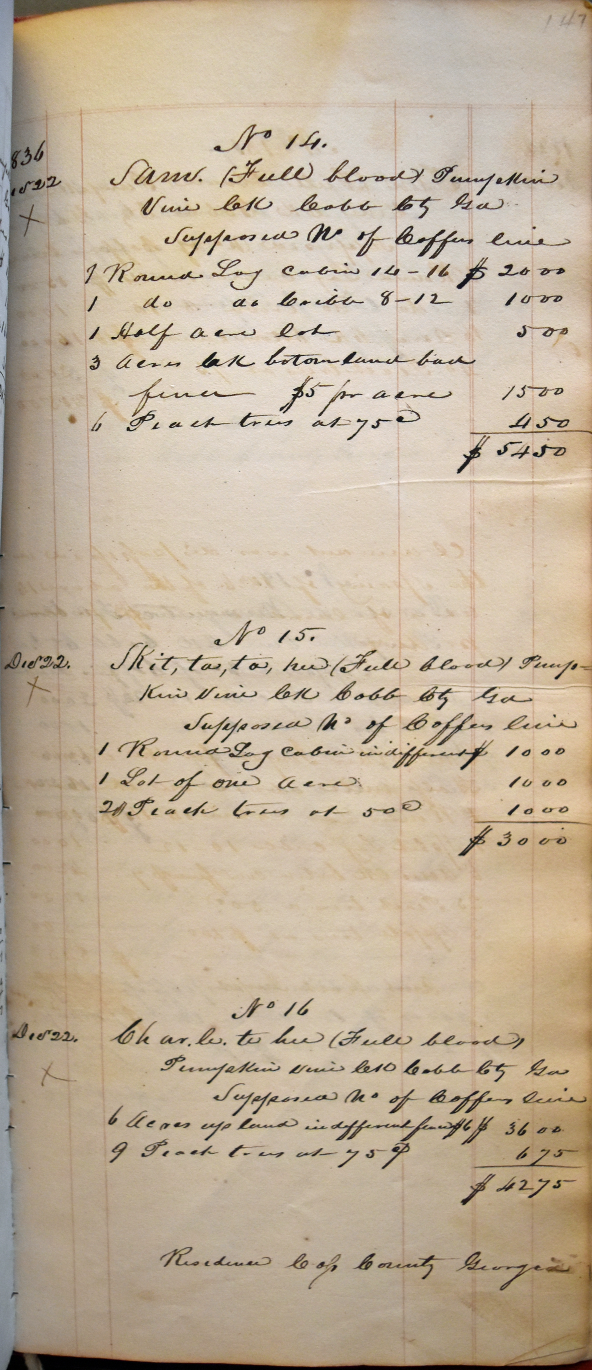 147
No 14.
836
Decr 22 Sam. (Full blood) Pumpkin
X Vine Ck Cobb Cty Ga
Supposed No of Coffees line
1 Round Log cabin 14-16 $ 20 00
1 do do Cribb 8-12 10 00
1 Half acre lot 5 00
3 Acres Ck botom land bad
fence $5 pr acre 15 00
6 Peach trees at 75c 4 50
$ 54 50
No 15.
Decr 22. Skit, ta, ta, hee (Full blood) Pump=
X kin Vine Ck Cobb Cty Ga
Supposed No of Coffees line
1 Round Log cabin indifferent $ 10 00
1 Lot of one acre 10 00
20 Peach trees at 50c 10 00
$ 30 00
No 16
Decr 22. Char. le. te hee (Full blood)
X Pumpkin vine Ck Cobb Cty Ga
Supposed No of Coffees line
6 Acres up land indifferent fence $6 $ 36 00
9 Peach trees at 75c 6 75
$ 42 75
Residence Cass County Georgia